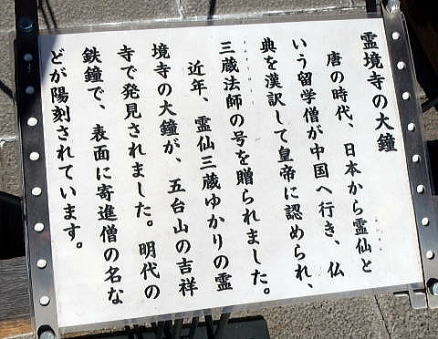 霊境寺の大鐘
唐の時代、日本から霊仙と
いう留学僧が中国へ行き、仏
典を漢訳して皇帝に認められ、
三蔵法師の号を贈られました。
近年、霊仙三蔵ゆかりの霊
境寺の大鐘が、五台山の吉祥
寺で発見されました。明代の
鉄鐘で、表面に寄進僧の名な
どが陽刻されています。